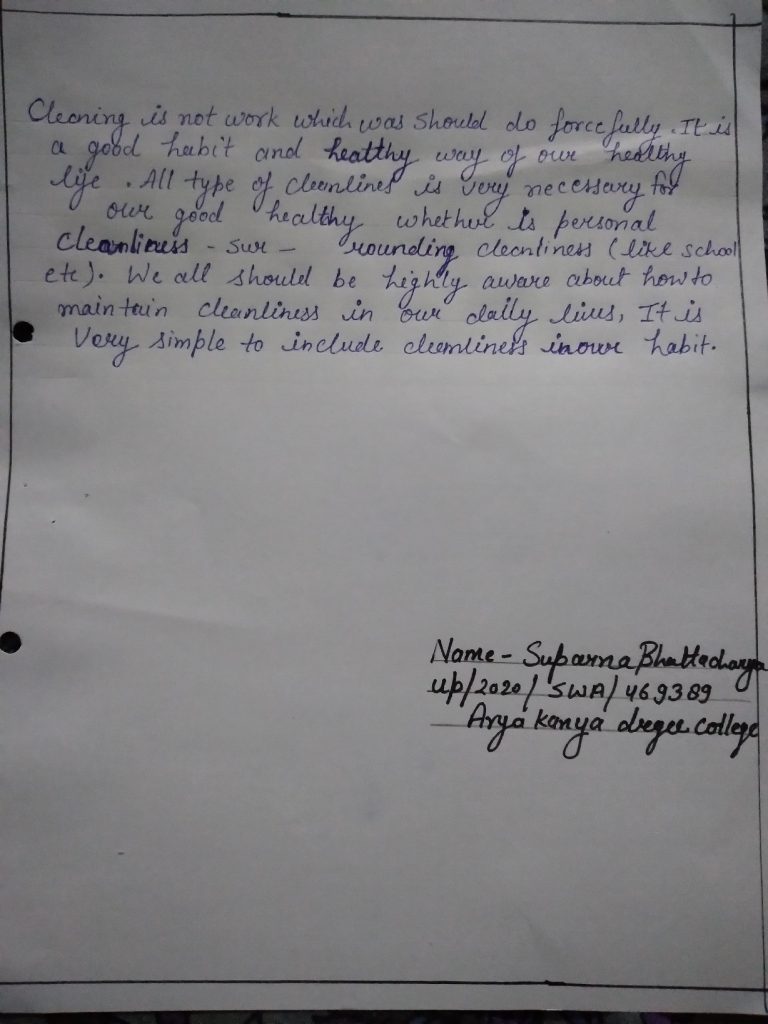 Cleaning is not work which was should do forcefully. It is
a good habit and healthy way of our healthy
life. All type of cleanlines is very necessary for
our good healthy whether is personal
cleanliness - sur - rounding cleanliness (like school
etc). We all should be highly aware about how to
maintain cleanliness in our daily lives, It is
Very simple to include cleanliness in our habit.
Name - Suparna Bhattacharya
up/2020/SWA/469389
Arya kanya dregee college